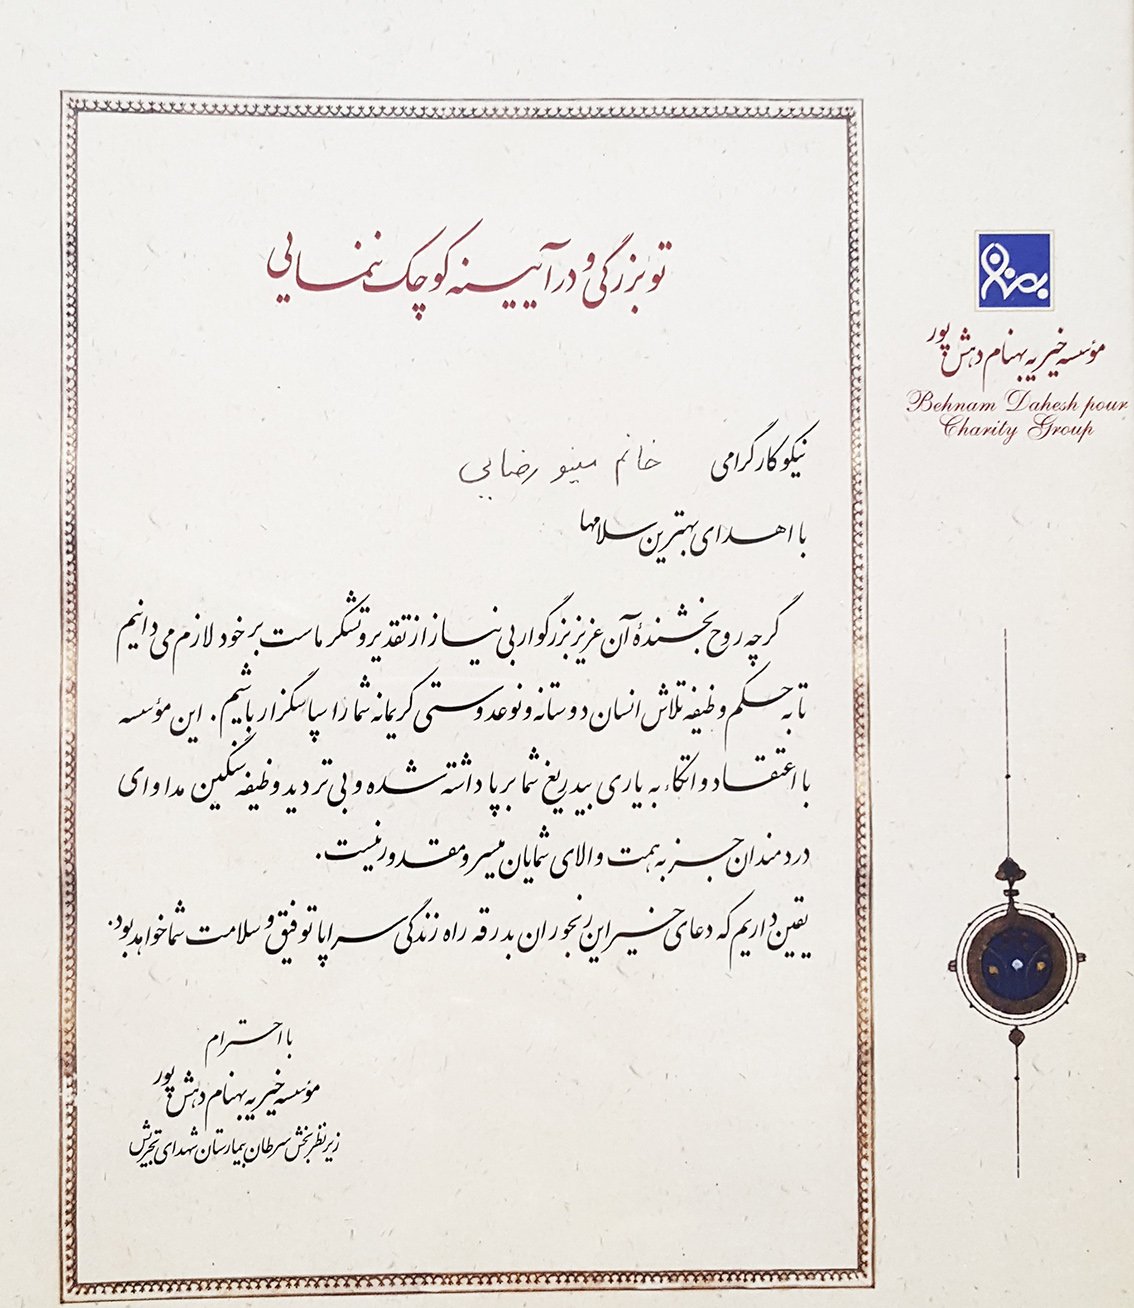 تو بزرگی و در آیینه کوچک ننمایی
بهنام
مؤسسه خیریه بهنام دهش پور
Behnam Dahesh pour
Charity Group
نیکوکار گرامی خانم مینو رضایی
با اهدای بهترین سلامها
گرچه روح بخشندهٔ آن عزیز بزرگوار بی نیاز از تقدیر و تشکر ماست بر خود لازم می دانیم
تا به حکم وظیفه تلاش انسان دوستانه و نوعدوستی کریمانه شما را سپاسگزار باشیم. این مؤسسه
با اعتقاد و اتکاء به یاری بیدریغ شما برپا داشته شده و بی تردید وظیفه سنگین مداوای
دردمندان جز به همت والای شمایان میسر و مقدور نیست.
یقین داریم که دعای خیر این رنجوران بدرقه راه زندگی سراپا توفیق و سلامت شما خواهد بود.
با احترام
مؤسسه خیریه بهنام دهش پور
زیر نظر بخش سرطان بیمارستان شهدای تجریش